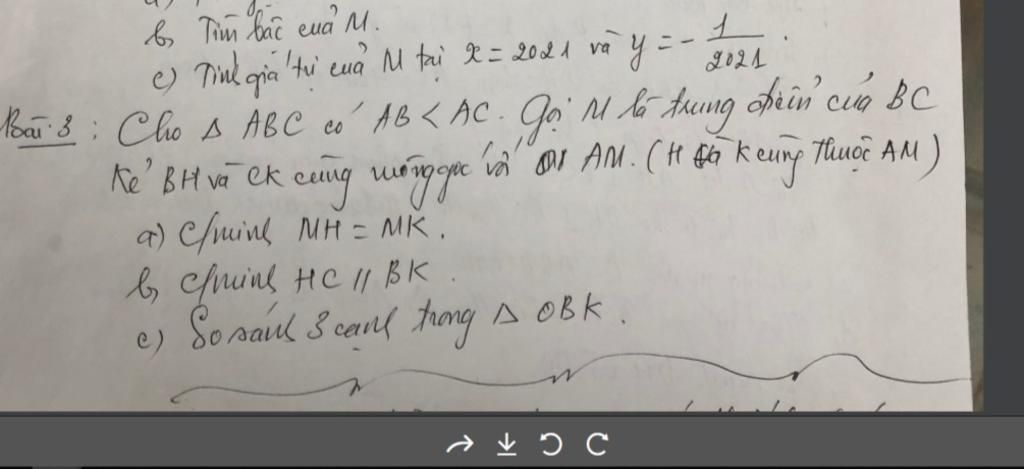 b, Tìm bậc của M.
c) Tính giá trị của M tại x = 2021 và y = - 1/2021.
Bài 3 : Cho Δ ABC có AB < AC. Gọi M là trung điểm của BC
Kẻ BH và CK cùng vuông góc với AM. (H và K cùng thuộc AM)
a) C/minh MH = MK.
b, C/minh HC // BK.
c) So sánh 3 cạnh trong Δ OBK.